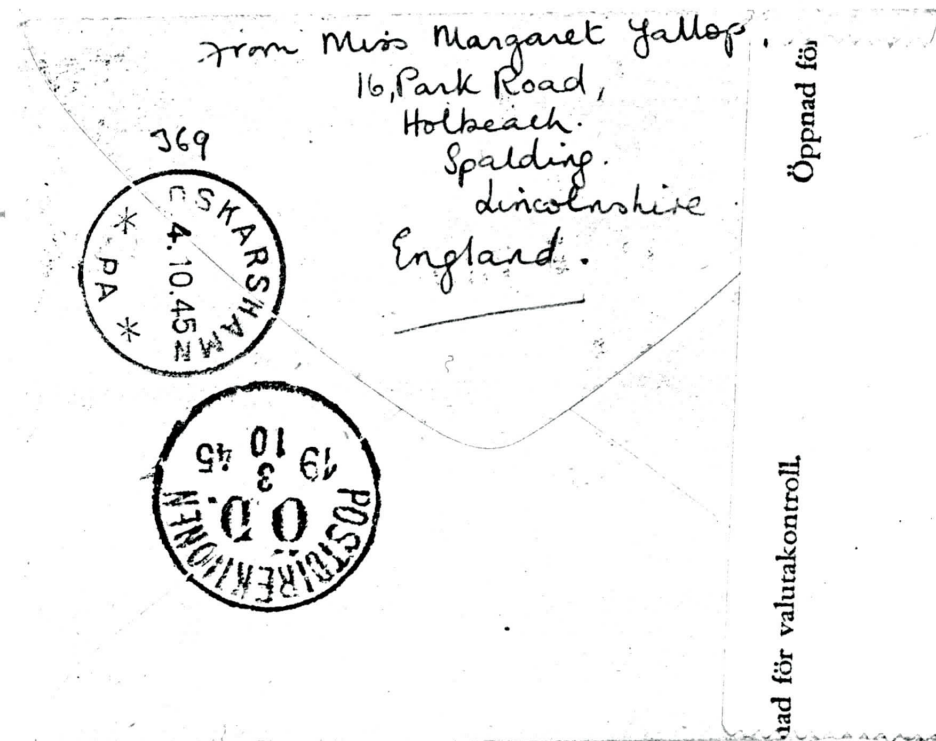 From Miss Margaret Gallop.
16, Park Road,
Holbeach.
Spalding.
Lincolnshire
England.
J69
OSKARSHAMN
4.10.45
* PA *
POSTDIREKTIONEN
Ö D.
3
19 10 45
Öppnad för
nad för valutakontroll.